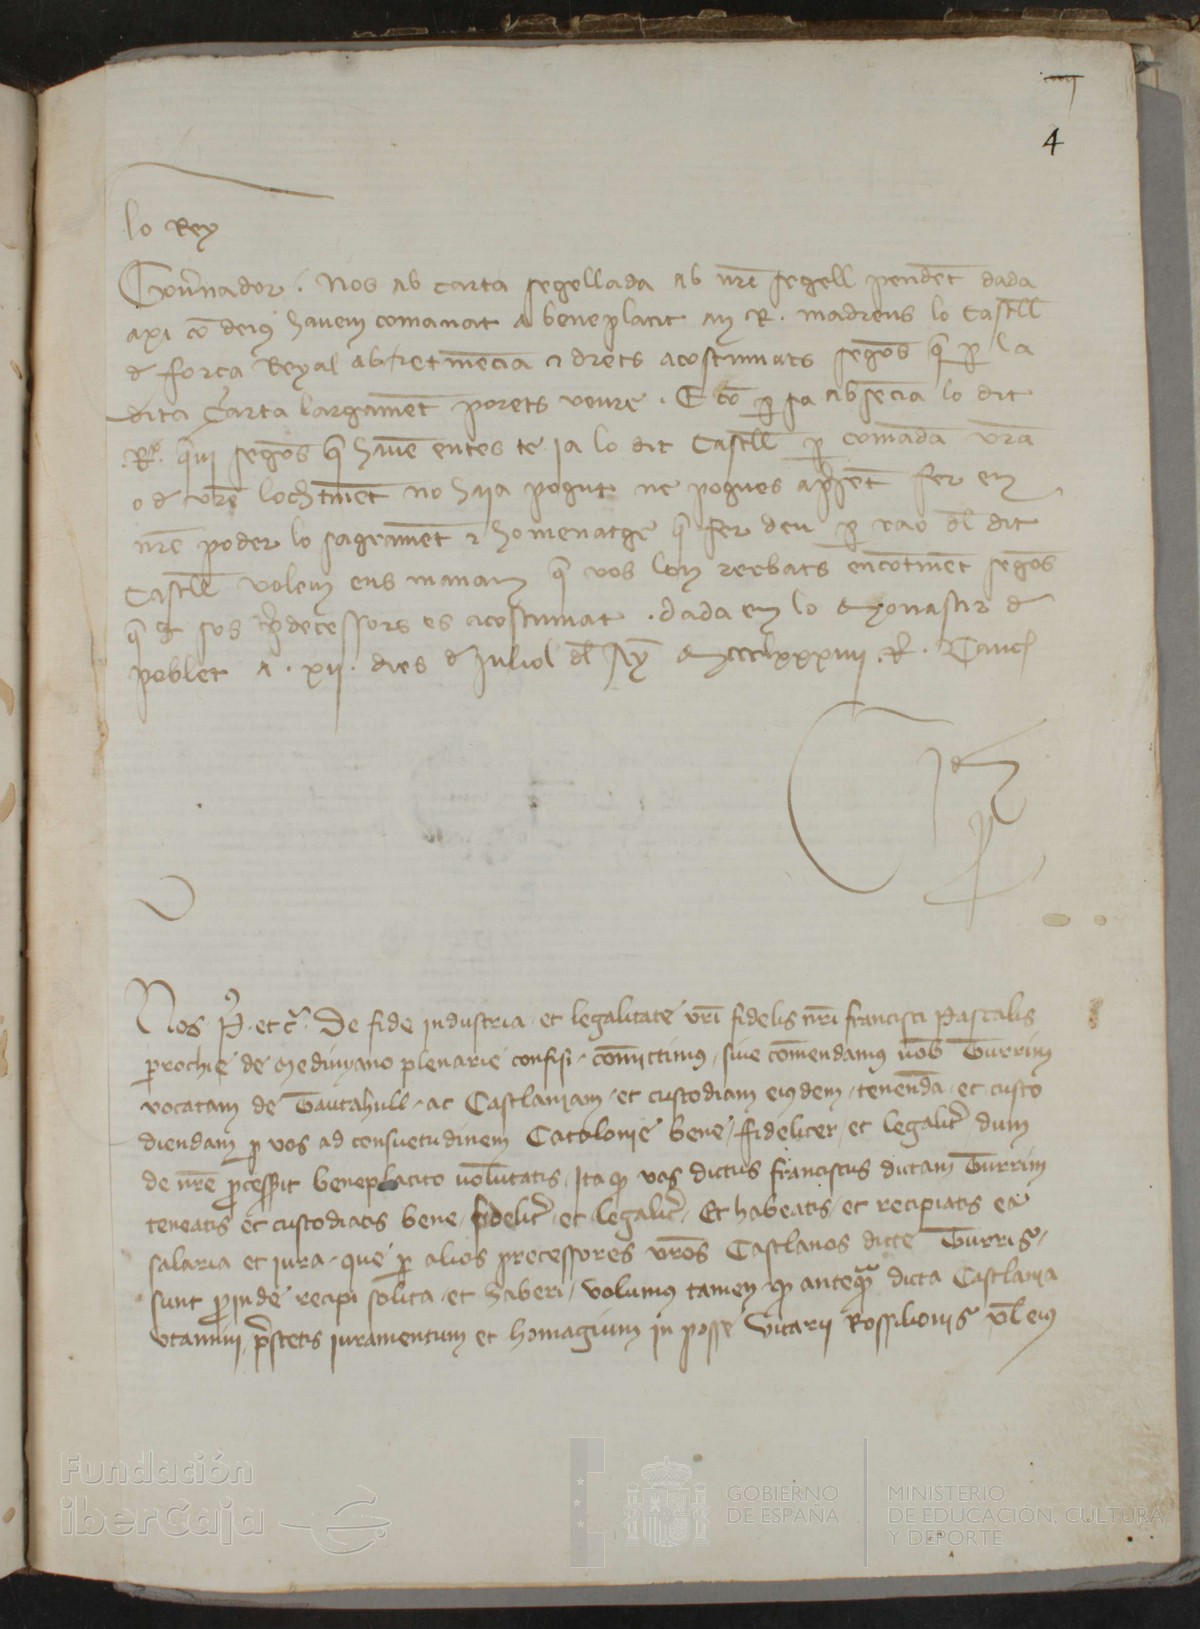 4
lo Rey
Gov̄nador . Nos ab carta segellada ab nr̄e segell pendēt dada
axi cō deiꝰ havem comanat a beneplacit an R. madrens lo Castēll
d força Reyal ab retinēcia ⁊ drets acostumats segōs q̄ ꝑ la
dita Carta largamēt porets veure . E cō ꝑ sa absēcia lo dit
.Rº. qui segōs q̄ havē entes te ia lo dit Castēll ꝑ comāda vr̄a
o d vr̄e lochtinēt no haja pogut ne pogues apn̄sēt fer en
nr̄e poder lo sagramēt ⁊ homenatge q̄ fer deu ꝑ rao dl̄ dit
Castēll volem ens manam q̄ vos lon reebats encōtinēt segōs
q̄ sos p̄decessors es acostumat . dada en lo Monastir d
poblet a . xii . dies d Juliol dl̄ Ay̅ Mccclxxxiiii . R̄.
Nos P̄. et c̄. De fide industria et legalitate vr̄i fidelis nr̄i francisci Pascalis
ꝑrochie de Medinyano plenarie confisi, cōmittimꝰ, sive cōmendamꝰ vob̄ Turrim
vocatam de Tautahull ac Castlaniam et custodiam eiusdem tenendā et custo
diendam ꝑ vos ad consuetudinem Catolonie bene, fideliter, et legalit̄ dum
de nr̄e ꝓcesserit beneplacito volūtatis, Ita ꝙ vos dictus franciscus dictam Turrim
teneatis et custodiatis bene, fidelit̄ et legalit̄, Et habeatis et recipiatis ea
salaria et iura que ꝑ alios precessores vr̄os Castlanos dicte Turris,
sunt ꝓinde recipi solita et haberi, volumus tamen ꝙ anteq̄ꝫ dicta Castlania
vtamini, p̄stetis iuramentum et homagium in posse Vicarii Rossilionis vl̄ eiꝰ
Fundación
iberCaja
GOBIERNO
DE ESPAÑA
MINISTERIO
DE EDUCACIÓN, CULTURA
Y DEPORTE